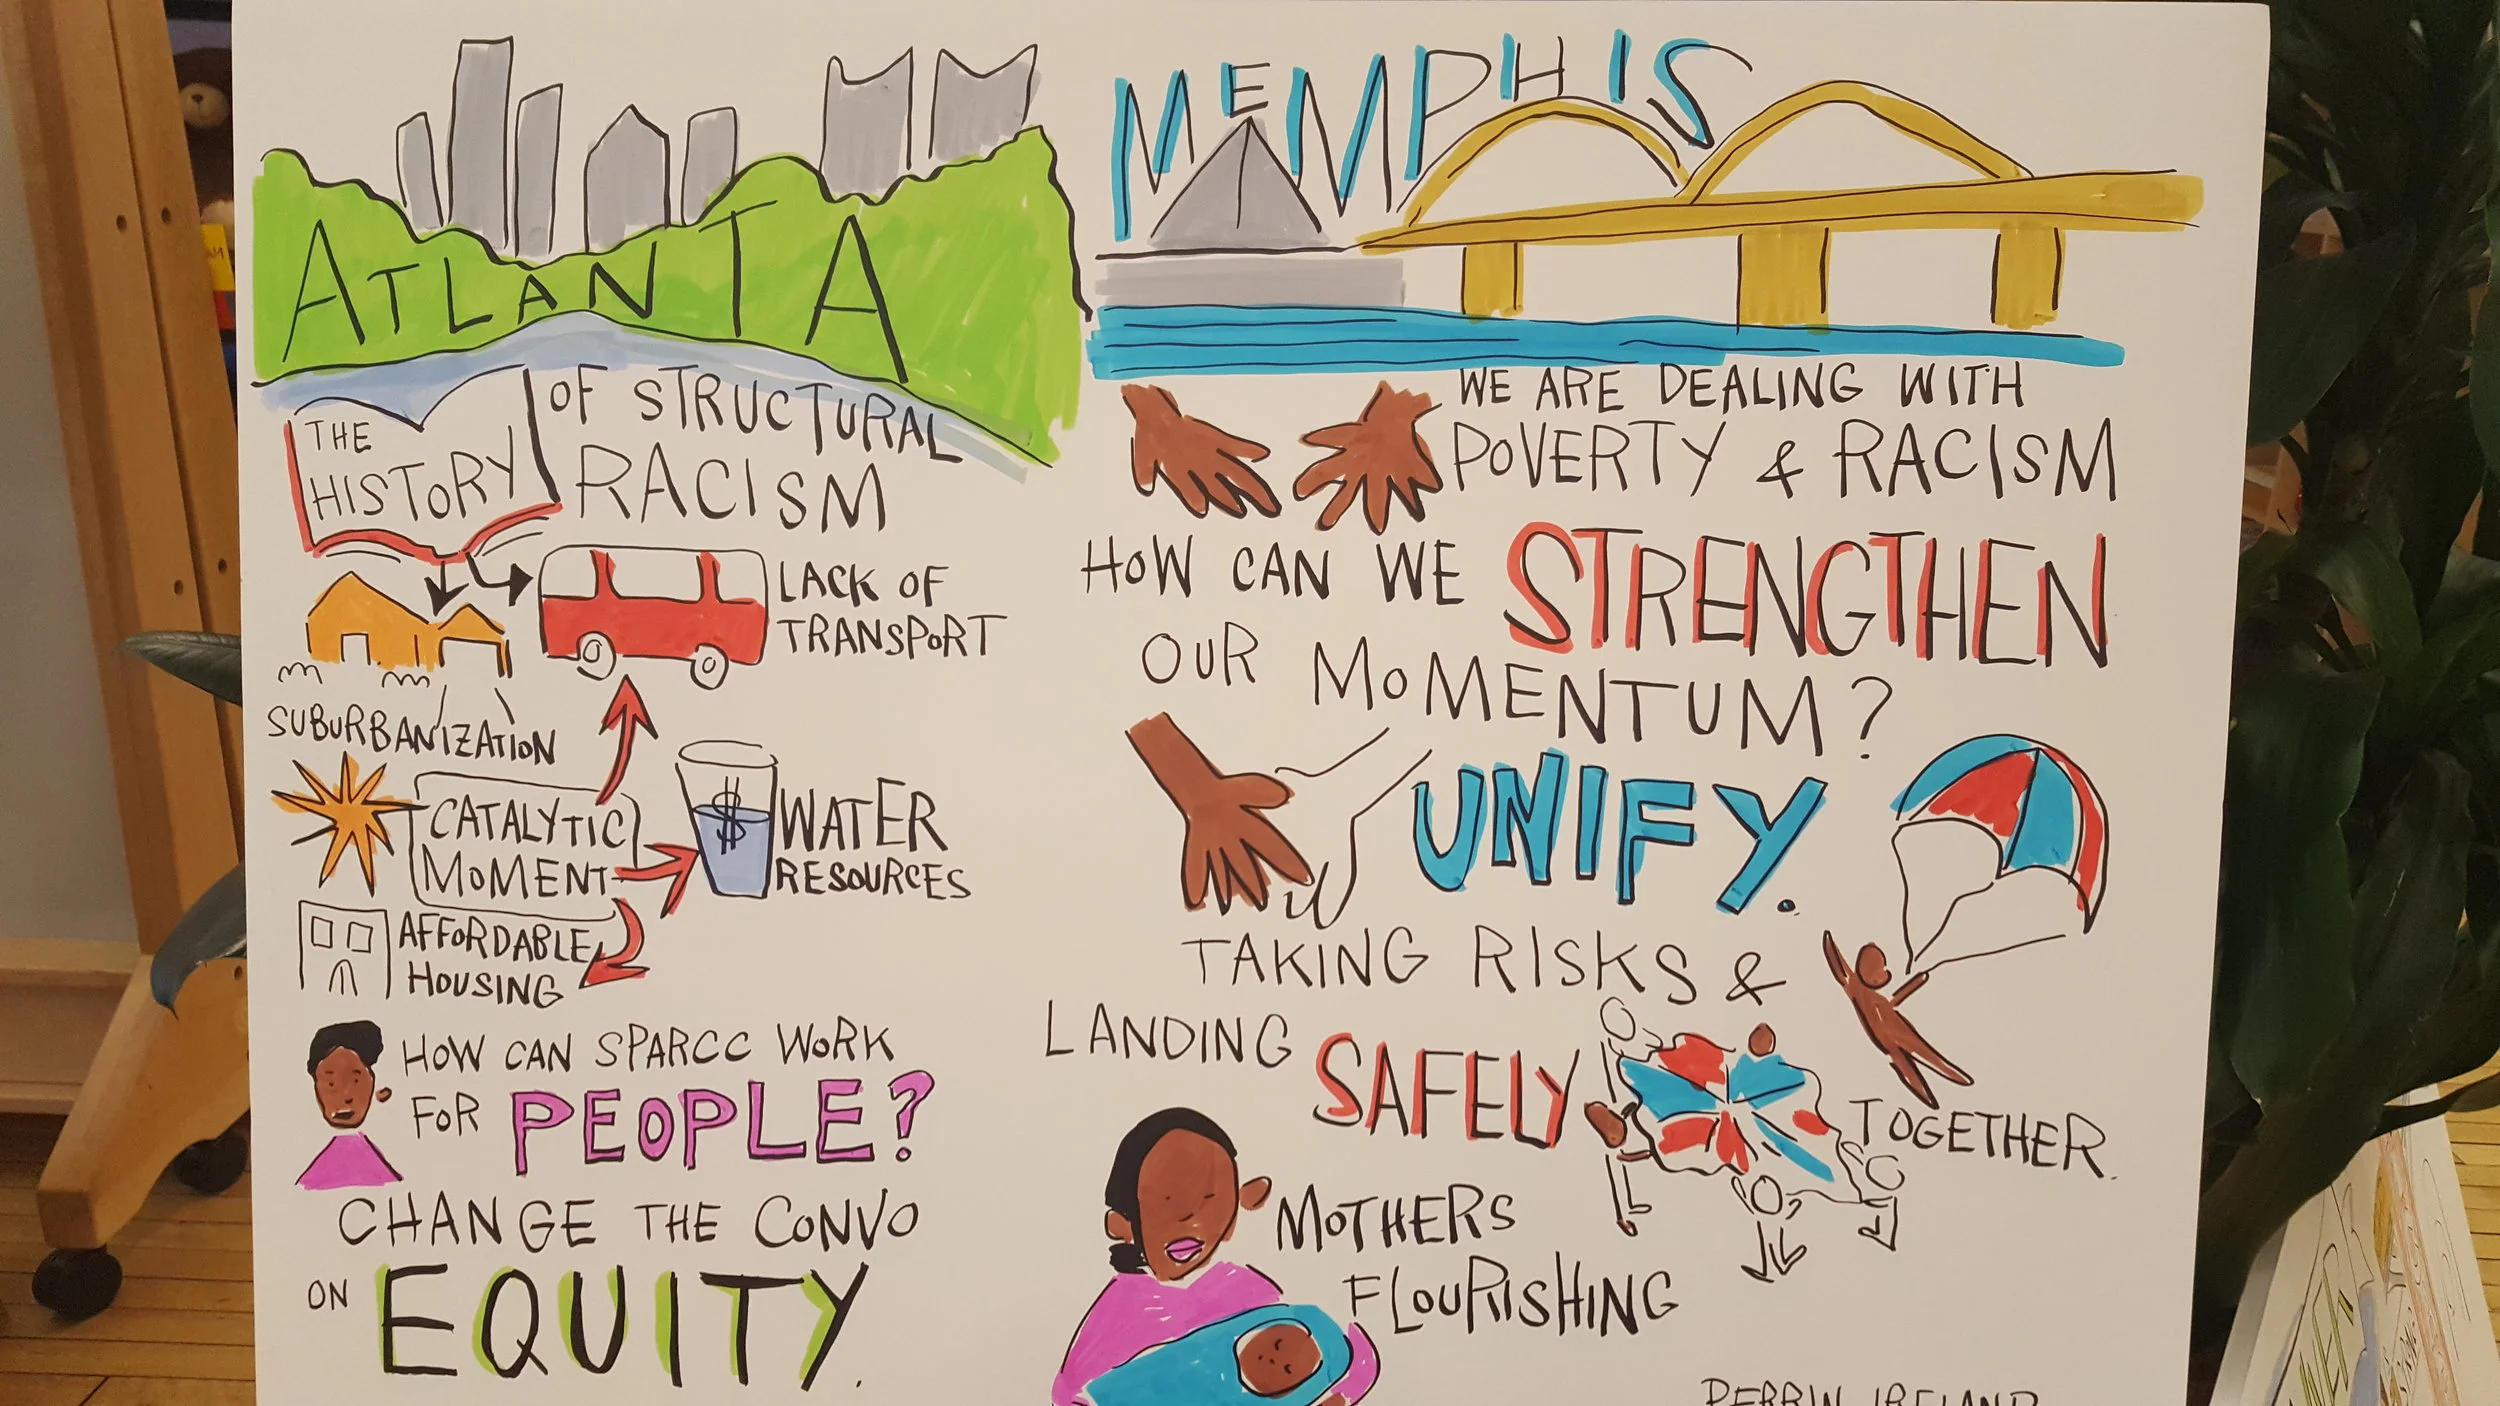 ATLANTA
THE
HISTORY
OF STRUCTURAL
RACISM
LACK OF
TRANSPORT
SUBURBANIZATION
CATALYTIC
MOMENT
$
WATER
RESOURCES
AFFORDABLE
HOUSING
HOW CAN SPARCC WORK
FOR PEOPLE?
CHANGE THE CONVO
ON EQUITY.
MEMPHIS
WE ARE DEALING WITH
POVERTY & RACISM
HOW CAN WE STRENGTHEN
OUR MOMENTUM?
UNIFY.
TAKING RISKS &
LANDING SAFELY
TOGETHER.
MOTHERS
FLOURISHING
PERRIN IRELAND